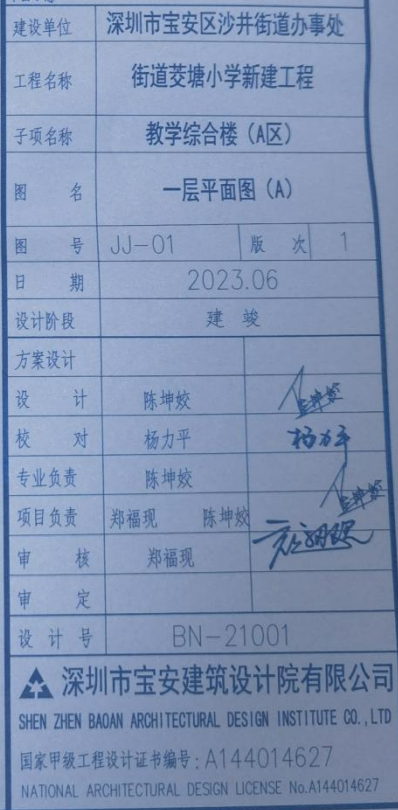 建设单位 深圳市宝安区沙井街道办事处
工程名称 街道茭塘小学新建工程
子项名称 教学综合楼（A区）
图 名 一层平面图（A）
图 号 JJ-01 版 次 1
日 期 2023.06
设计阶段 建 竣
方案设计
设 计 陈坤姣
校 对 杨力平 杨力平
专业负责 陈坤姣
项目负责 郑福现 陈坤姣
审 核 郑福现
审 定
设 计 号 BN-21001
深圳市宝安建筑设计院有限公司
SHEN ZHEN BAOAN ARCHITECTURAL DESIGN INSTITUTE CO.,LTD
国家甲级工程设计证书编号:A144014627
NATIONAL ARCHITECTURAL DESIGN LICENSE No.A144014627